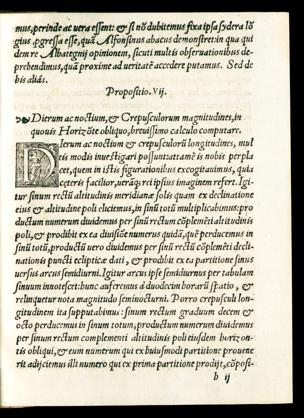 mus, perinde ac vera essent: & si nõ dubitemus fixa ipsa sydera lõ
gius ꝓgressa esse, quã Alfonsinus abacus demonstret: in qua qui
dem re Albategnij opinionem, sicuti multis observationibus de-
prehendimus, quã proxime ad veritatẽ accedere putamus. Sed de
his aliàs.
Propositio. Vij.
Dierum ac noctium, & Crepusculorum magnitudines, in
quovis Horizõte obliquo, brevissimo calculo computare.
DIerum ac noctium & crepusculorũ longitudines, mul
tis modis investigari possunt: attamẽ is nobis perpla
cet, quem in istis figurationibus excogitavimus, quia
cęteris facilior, veràq; rei ipsius imaginem refert. Igi-
tur sinum rectũ altitudinis meridianæ solis quam ex declinatione
eius & altitudine poli elicuimus, in sinũ totũ multiplicabimus: pro
ductum numerum dividemus per sinũ rectum cõplemẽti altitudinis
poli, & prodibit ex ea divisiõe numerus quidã, quẽ perducemus in
sinũ totũ, productũ vero dividemus per sinũ rectũ cõplemẽti decli-
nationis puncti eclipticæ dati, & prodibit ex ea partitione sinus
versus arcus semidiurni. Igitur arcus ipse semidiurnus per tabulam
sinuum innotescet: hunc auferemus à duodecim horarũ spatio, &
relinquetur nota magnitudo seminocturni. Porro crepusculi lon-
gitudinem ita supputabimus: sinum rectum graduum decem &
octo perducemus in sinum totum: productum numerum dividemus
per sinum rectum complementi altitudinis poli eiusdem horizon-
tis obliqui, & eum numerum qui ex huiusmodi partitione provene
rit adijciemus illi numero qui ex prima partitione prodijt, cõposi-
h ij